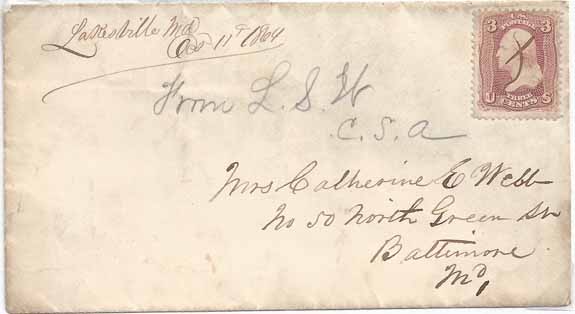 Lakesville Md
Oct 11th 1864
3 U.S. POSTAGE 3
From L. S. W
C. S. A
THREE
U CENTS S
Mrs Catherine E Webb
No 50 North Green St
Baltimore
Md,